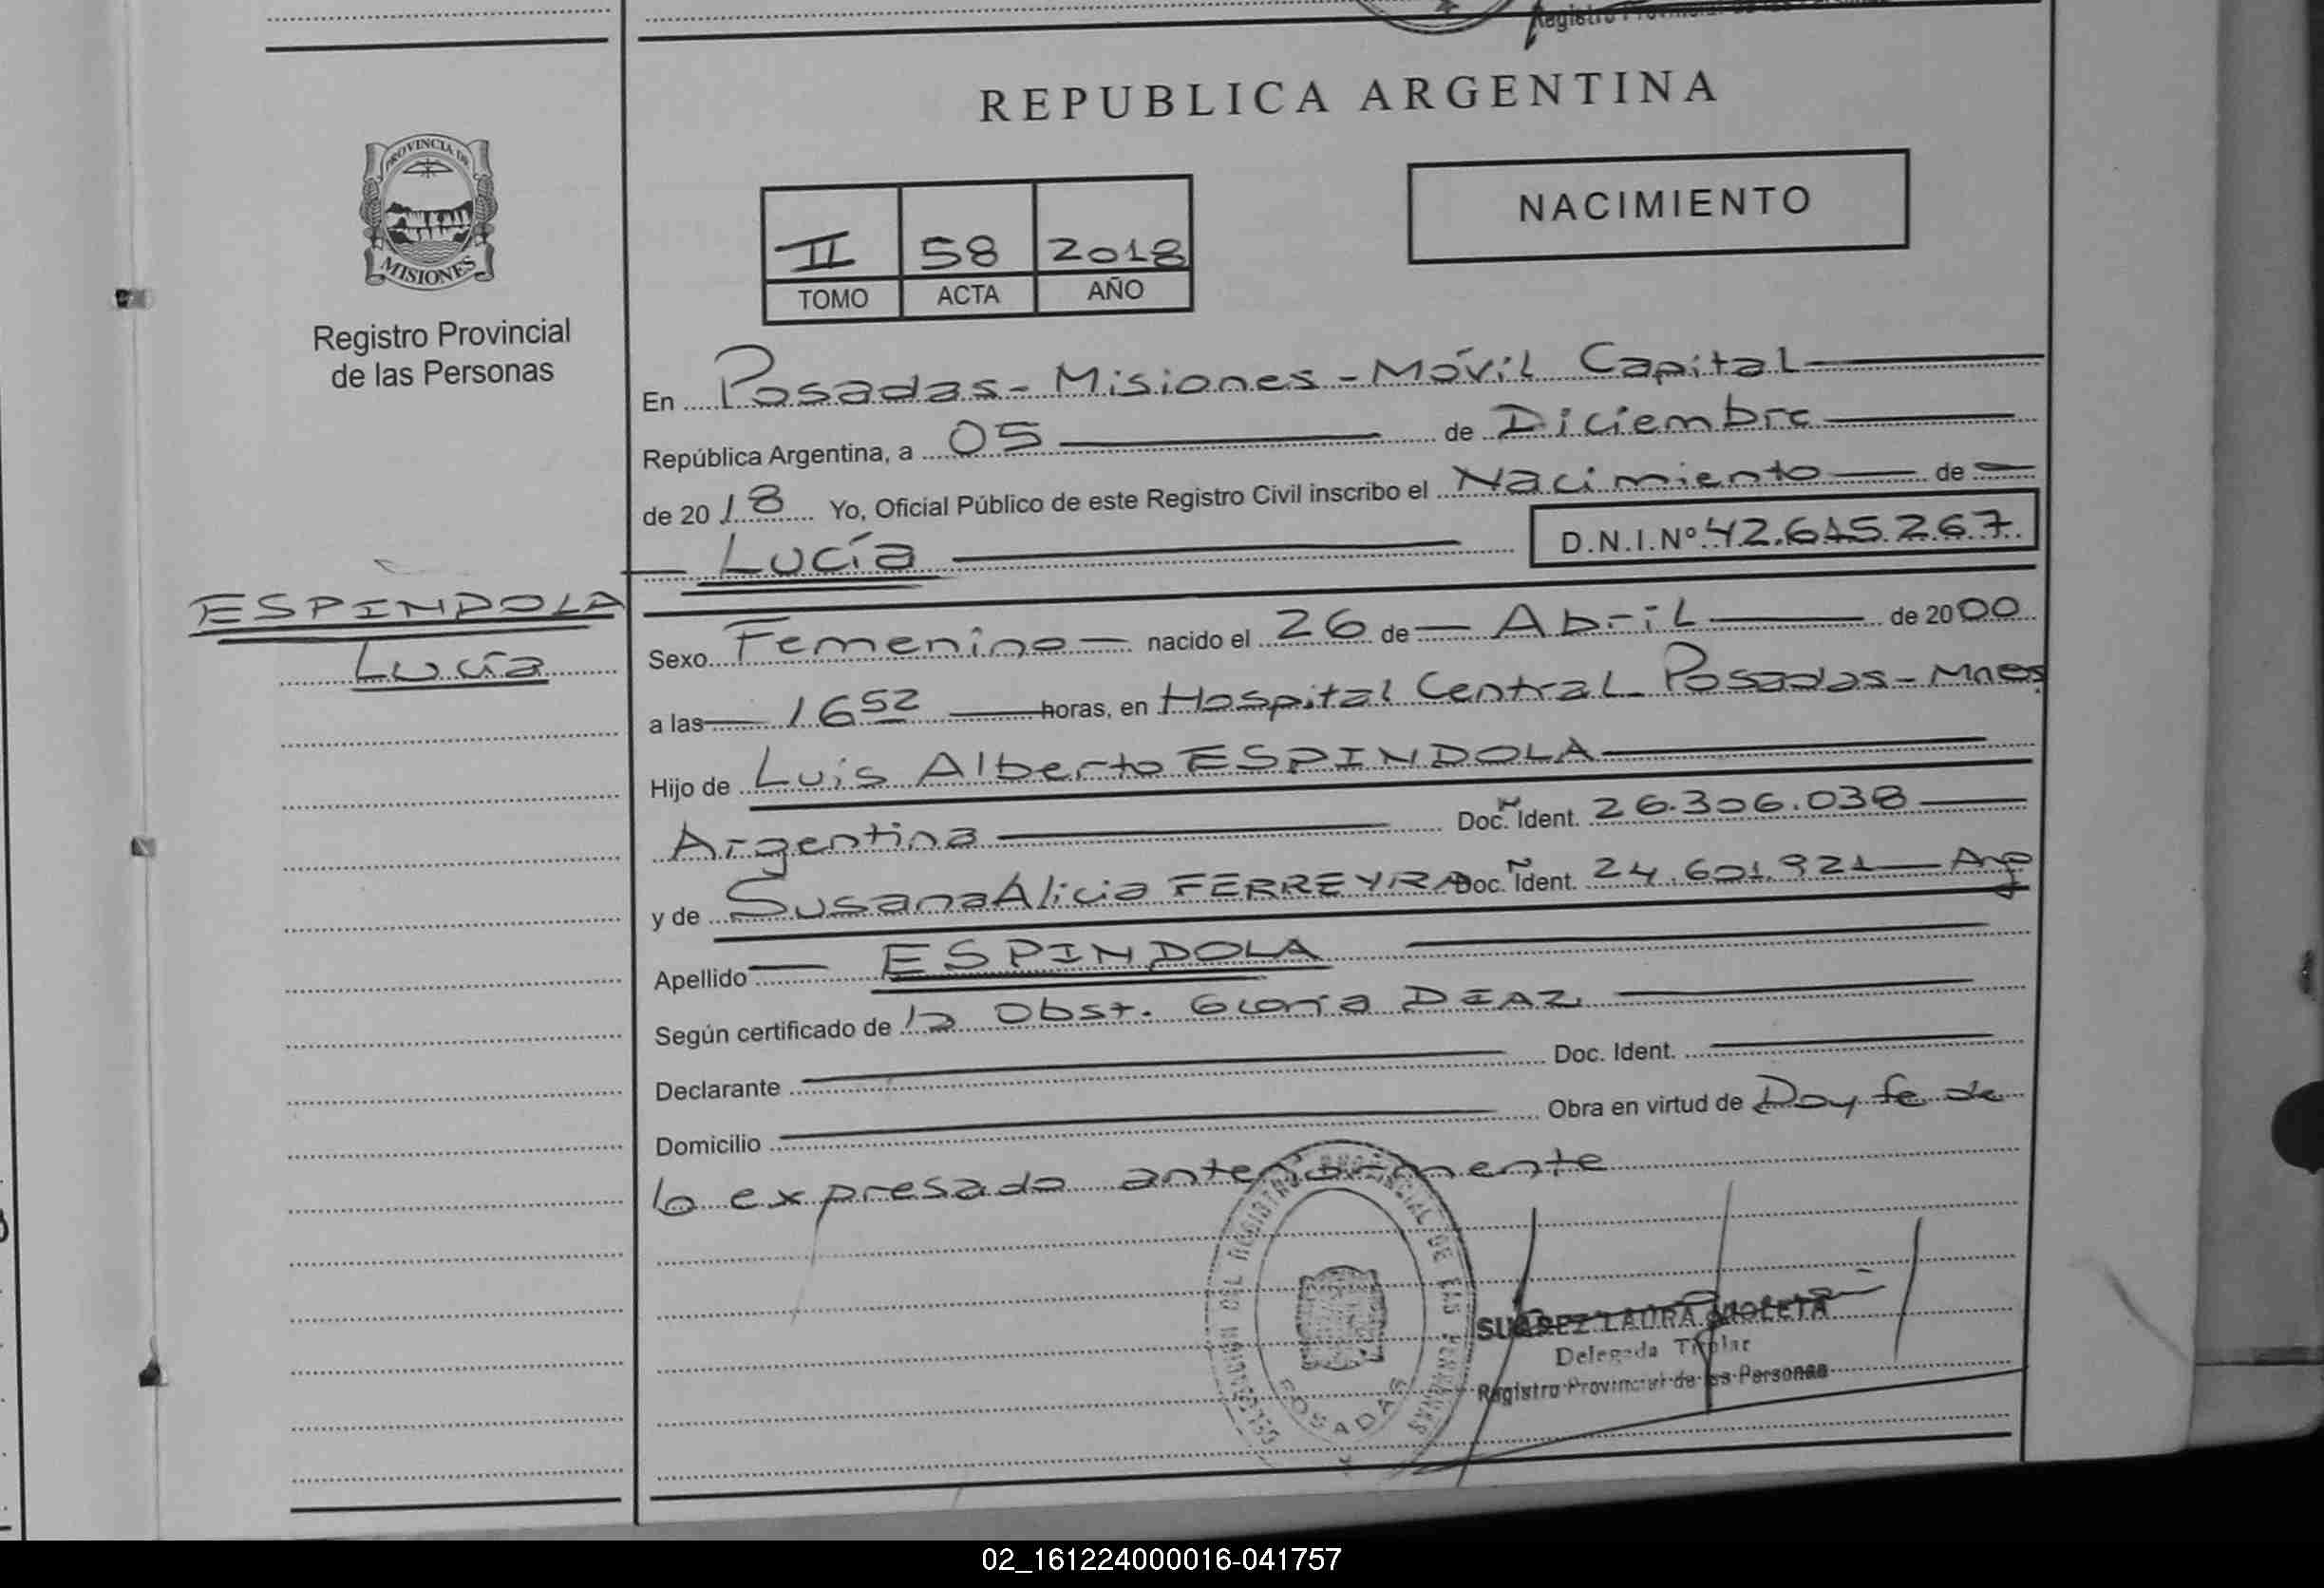 Registro Provincial de las Personas
REPUBLICA ARGENTINA
PROVINCIA DE
MISIONES
Registro Provincial
de las Personas
II 58 2018
TOMO ACTA AÑO
NACIMIENTO
En Posadas - Misiones - Móvil Capital
República Argentina, a 05 de Diciembre
de 2018 Yo, Oficial Público de este Registro Civil inscribo el Nacimiento de
Lucía D.N.I.Nº 42.615.267.
ESPINDOLA
Lucía
Sexo Femenino nacido el 26 de Abril de 2000
a las 16 52 horas, en Hospital Central - Posadas - Mnes
Hijo de Luis Alberto ESPINDOLA
Argentina Doc. Ident. 26.306.038
y de Susana Alicia FERREYRA Doc. Ident. 24.601.921 - Arg
Apellido ESPINDOLA
Según certificado de la Obst. Gloria DIAZ
Declarante Doc. Ident.
Domicilio Obra en virtud de Doy fe de
lo expresado anteriormente
DEL REGISTRO PROVINCIAL DE LAS PERSONAS
POSADAS
SUAREZ LAURA VIOLETA
Delegada Titular
Registro Provincial de las Personas
02_161224000016-041757